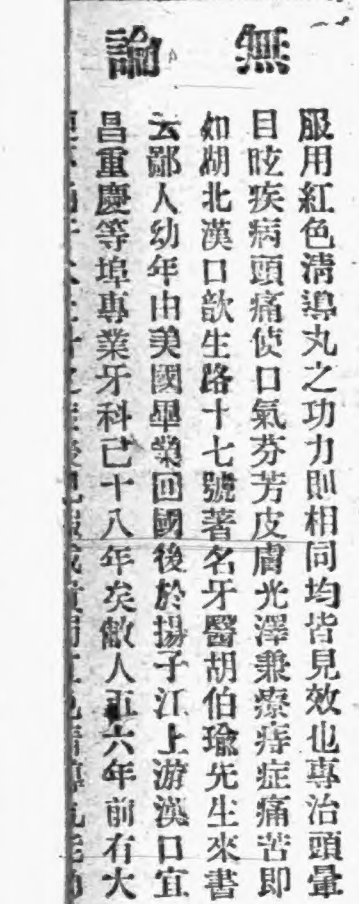 無論
服用紅色清導丸之功力則相同均皆見效也專治頭暈
目眩疾病頭痛使口氣芬芳皮膚光澤兼療痔症痛苦即
如湖北漢口歆生路十七號著名牙醫胡伯瑜先生來書
云鄙人幼年由美國畢業回國後於揚子江上游漢口宜
昌重慶等埠專業牙科已十八年矣敝人五六年前有大